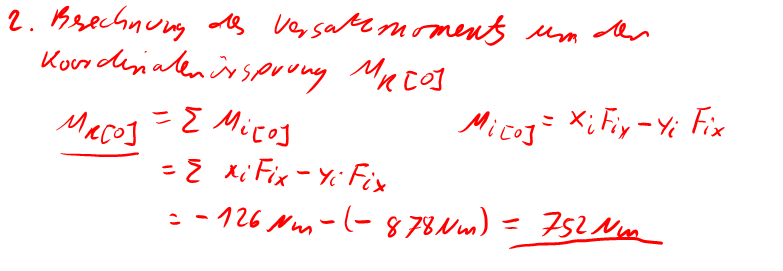 2. Berechnung des Versatzmoments um den
Koordinatenursprung M_R[O]
M_R[O] = Σ M_i[O]    M_i[O] = x_i F_iy - y_i F_ix
= Σ x_i F_ix - y_i F_ix
= - 126 Nm - (- 878 Nm) = 752 Nm